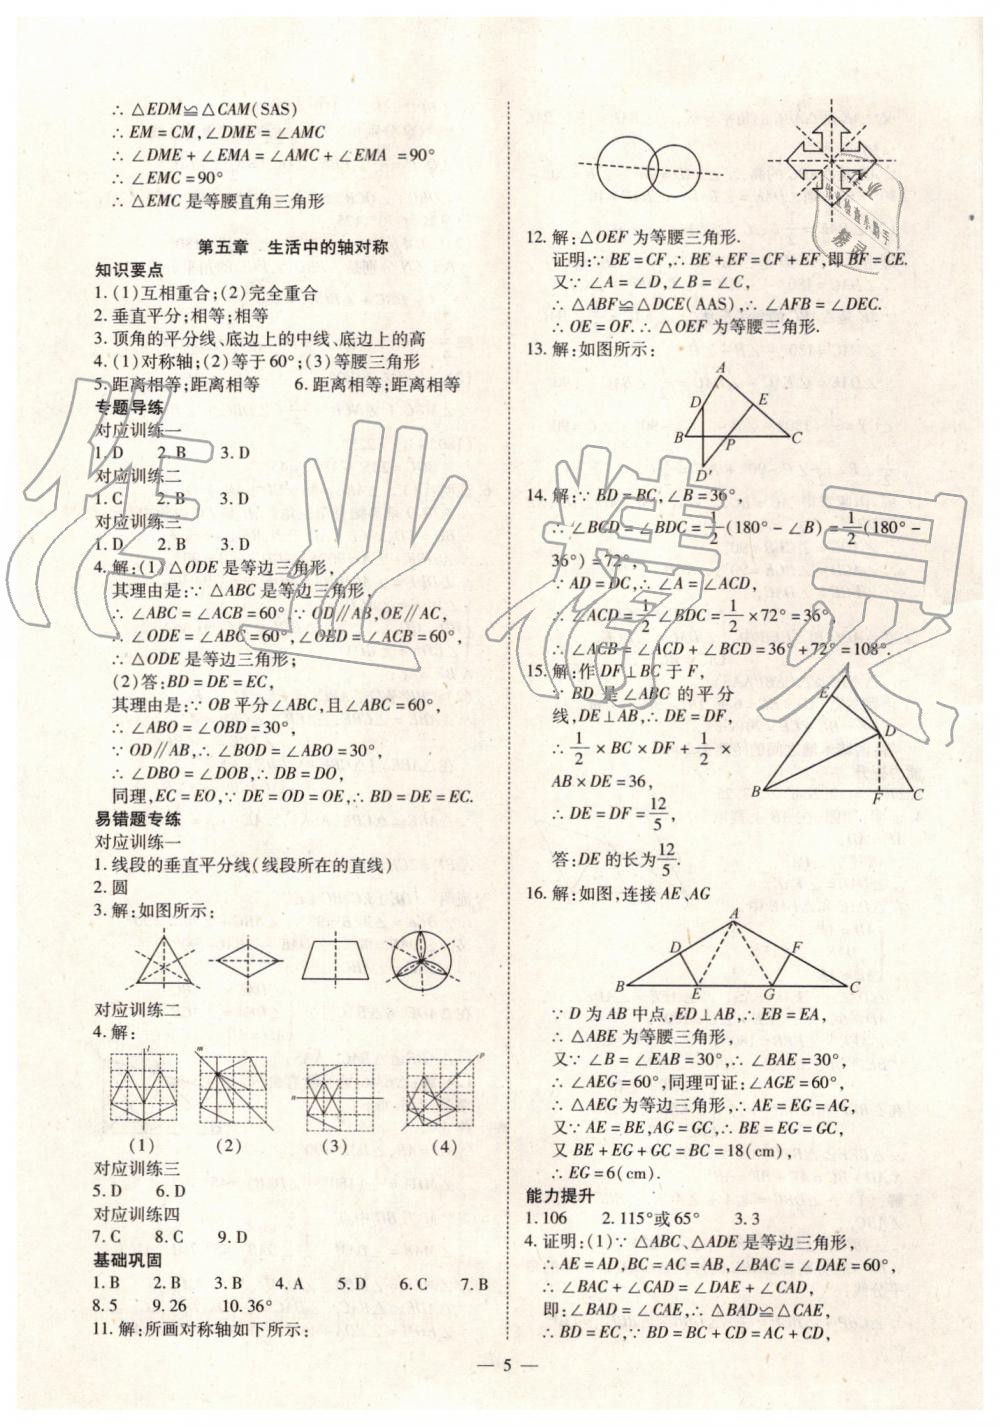 ∴ △EDM≌△CAM(SAS)
∴ EM = CM,∠DME = ∠AMC
∴ ∠DME + ∠EMA = ∠AMC + ∠EMA = 90°
∴ ∠EMC = 90°
∴ △EMC 是等腰直角三角形
第五章 生活中的轴对称
知识要点
1. (1)互相重合;(2)完全重合
2. 垂直平分;相等;相等
3. 顶角的平分线、底边上的中线、底边上的高
4. (1)对称轴;(2)等于60°;(3)等腰三角形
5. 距离相等;距离相等 6. 距离相等;距离相等
专题导练
对应训练一
1. D 2. B 3. D
对应训练二
1. C 2. B 3. D
对应训练三
1. D 2. B 3. D
4. 解:(1)△ODE 是等边三角形,
其理由是:∵ △ABC 是等边三角形,
∴ ∠ABC = ∠ACB = 60° ∵ OD∥AB,OE∥AC,
∴ ∠ODE = ∠ABC = 60°,∠OED = ∠ACB = 60°,
∴ △ODE 是等边三角形;
(2)答:BD = DE = EC,
其理由是:∵ OB 平分∠ABC,且∠ABC = 60°,
∴ ∠ABO = ∠OBD = 30°,
∵ OD∥AB,∴ ∠BOD = ∠ABO = 30°,
∴ ∠DBO = ∠DOB,∴ DB = DO,
同理,EC = EO,∵ DE = OD = OE,∴ BD = DE = EC.
易错题专练
对应训练一
1. 线段的垂直平分线(线段所在的直线)
2. 圆
3. 解:如图所示:
对应训练二
4. 解:
l m n p
(1) (2) (3) (4)
对应训练三
5. D 6. D
对应训练四
7. C 8. C 9. D
基础巩固
1. B 2. B 3. B 4. A 5. D 6. C 7. B
8. 5 9. 26 10. 36°
11. 解:所画对称轴如下所示:
12. 解:△OEF 为等腰三角形.
证明:∵ BE = CF,∴ BE + EF = CF + EF,即 BF = CE.
又∵ ∠A = ∠D,∠B = ∠C,
∴ △ABF≌△DCE(AAS),∴ ∠AFB = ∠DEC.
∴ OE = OF. ∴ △OEF 为等腰三角形.
13. 解:如图所示:
A
D E
B P C
D′
14. 解:∵ BD = BC,∠B = 36°,
∴ ∠BCD = ∠BDC = 1/2 (180° − ∠B) = 1/2 (180° −
36°) = 72°,
∵ AD = DC,∴ ∠A = ∠ACD,
∴ ∠ACD = 1/2 ∠BDC = 1/2 × 72° = 36°,
∴ ∠ACB = ∠ACD + ∠BCD = 36° + 72° = 108°.
15. 解:作 DF⊥BC 于 F,
∵ BD 是 ∠ABC 的平分
线,DE⊥AB,∴ DE = DF,
∴ 1/2 × BC × DF + 1/2 ×
AB × DE = 36,
∴ DE = DF = 12/5,
答:DE 的长为 12/5.
A
E
D
B F C
16. 解:如图,连接 AE、AG
A
D F
B E G C
∵ D 为 AB 中点,ED⊥AB,∴ EB = EA,
∴ △ABE 为等腰三角形,
又∵ ∠B = ∠EAB = 30°,∴ ∠BAE = 30°,
∴ ∠AEG = 60°,同理可证:∠AGE = 60°,
∴ △AEG 为等边三角形,∴ AE = EG = AG,
又∵ AE = BE,AG = GC,∴ BE = EG = GC,
又 BE + EG + GC = BC = 18(cm),
∴ EG = 6(cm).
能力提升
1. 106 2. 115°或 65° 3. 3
4. 证明:(1)∵ △ABC、△ADE 是等边三角形,
∴ AE = AD,BC = AC = AB,∠BAC = ∠DAE = 60°,
∴ ∠BAC + ∠CAD = ∠DAE + ∠CAD,
即:∠BAD = ∠CAE,∴ △BAD≌△CAE,
∴ BD = EC,∵ BD = BC + CD = AC + CD,
— 5 —
作业精灵